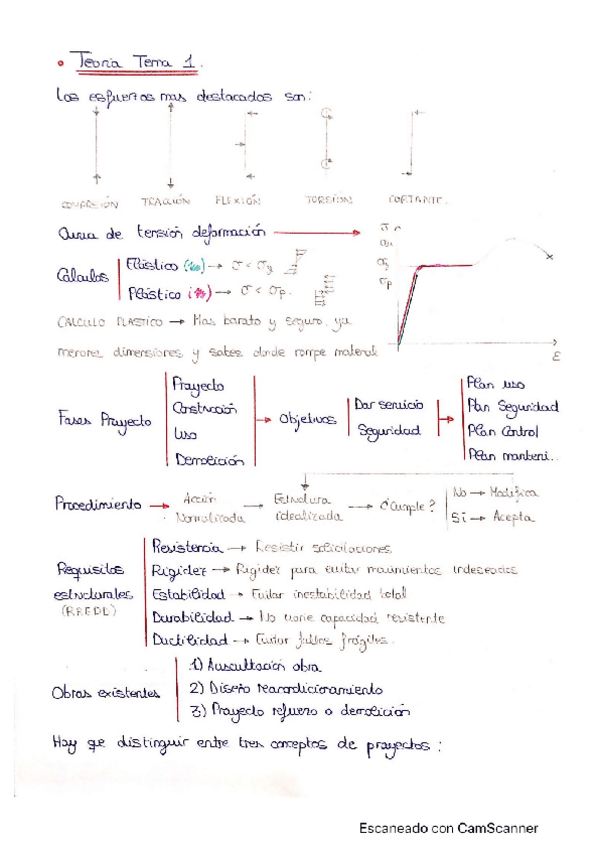 • Teoría Tema 1.
Los esfuerzos mas destacados son:
COMPRESIÓN TRACCIÓN FLEXIÓN TORSIÓN CORTANTE.
Curva de tensión deformación →
σ
σu
σy
σp
ε
Cálculos
Elástico → σ < σy
Plástico → σ < σp.
CALCULO PLASTICO → Mas barato y seguro, ya
menores dimensiones y sabes donde rompe material
Fases Proyecto
Proyecto
Construcción
Uso
Demolición
→ Objetivos
Dar servicio
Seguridad
→
Plan uso
Plan Seguridad
Plan Control
Plan manteni..
Procedimiento → Acción Normalizada → Estructura idealizada → ¿Cumple?
No → Modifica
Si → Acepta
Requisitos
estructurales
(RREDD)
Resistencia → Resistir solicitaciones
Rigidez → Rigidez para evitar movimientos indeseados
Estabilidad → Evitar inestabilidad total
Durabilidad → No varíe capacidad resistente
Ductilidad → Evitar fallos frágiles.
Obras existentes
1) Auscultación obra
2) Diseño reacondicionamiento
3) Proyecto refuerzo o demolición
Hay que distinguir entre tres conceptos de proyectos:
Escaneado con CamScanner